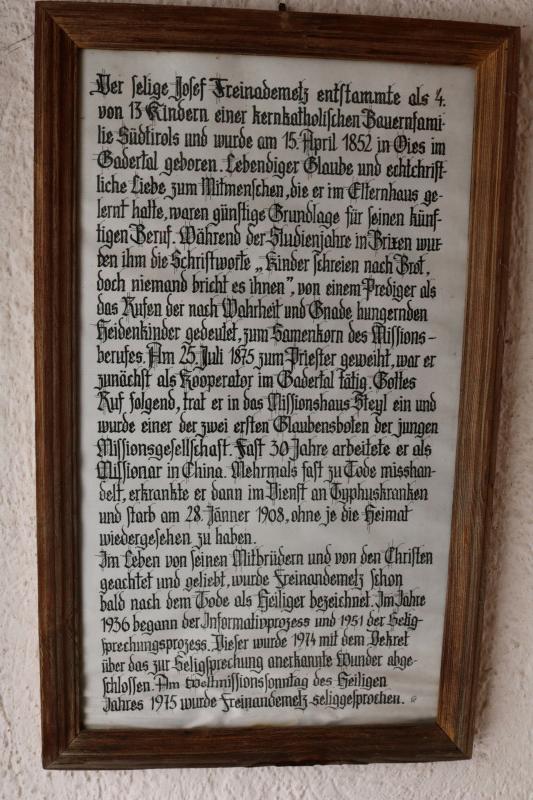 Der selige Josef Freinademetz entstammte als 4.
von 13 Kindern einer kernkatholischen Bauernfami-
lie Südtirols und wurde am 15. April 1852 in Oies im
Gadertal geboren. Lebendiger Glaube und echtchrist-
liche Liebe zum Mitmenschen, die er im Elternhaus ge-
lernt hatte, waren günstige Grundlage für seinen künf-
tigen Beruf. Während der Studienjahre in Brixen wur-
den ihm die Schriftworte „Kinder schreien nach Brot,
doch niemand bricht es ihnen", von einem Prediger als
das Rufen der nach Wahrheit und Gnade hungernden
Heidenkinder gedeutet, zum Samenkorn des Missions-
berufes. Am 25. Juli 1875 zum Priester geweiht, war er
zunächst als Kooperator im Gadertal tätig. Gottes
Ruf folgend, trat er in das Missionshaus Steyl ein und
wurde einer der zwei ersten Glaubensboten der jungen
Missionsgesellschaft. Fast 30 Jahre arbeitete er als
Missionar in China. Mehrmals fast zu Tode misshan-
delt, erkrankte er dann im Dienst an Typhuskranken
und starb am 28. Jänner 1908, ohne je die Heimat
wiedergesehen zu haben.
Im Leben von seinen Mitbrüdern und von den Christen
geachtet und geliebt, wurde Freinandemetz schon
bald nach dem Tode als Heiliger bezeichnet. Im Jahre
1936 begann der Informativprozess und 1951 der Selig-
sprechungsprozess. Dieser wurde 1974 mit dem Dekret
über das zur Seligsprechung anerkannte Wunder abge-
schlossen. Am Weltmissionsonntag des Heiligen
Jahres 1975 wurde Freinandemetz seliggesprochen.